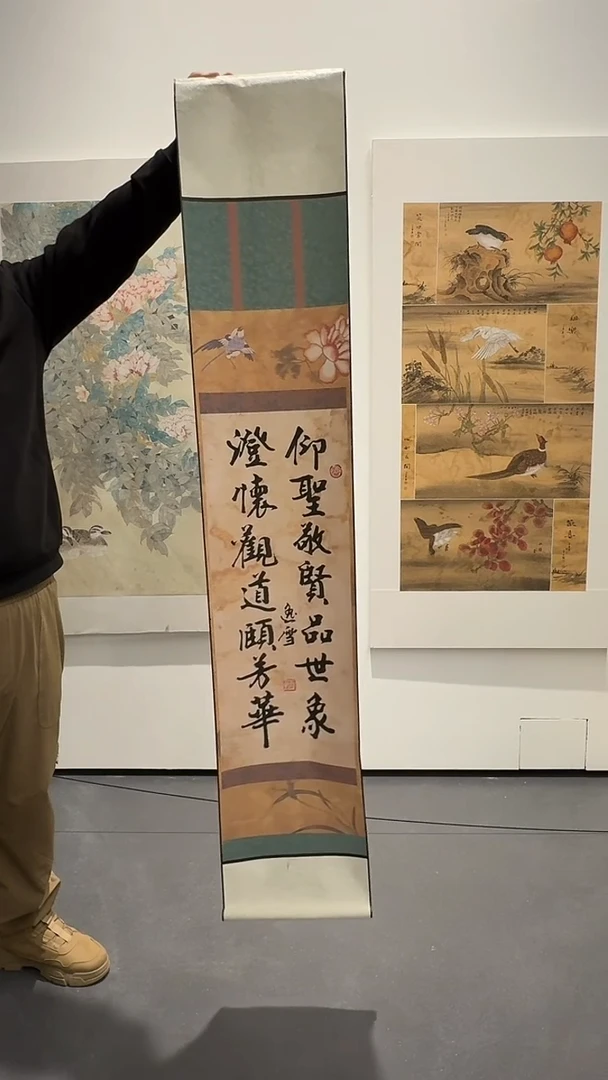 仰聖敬賢品世象
澄懷觀道頤芳華
逸雪